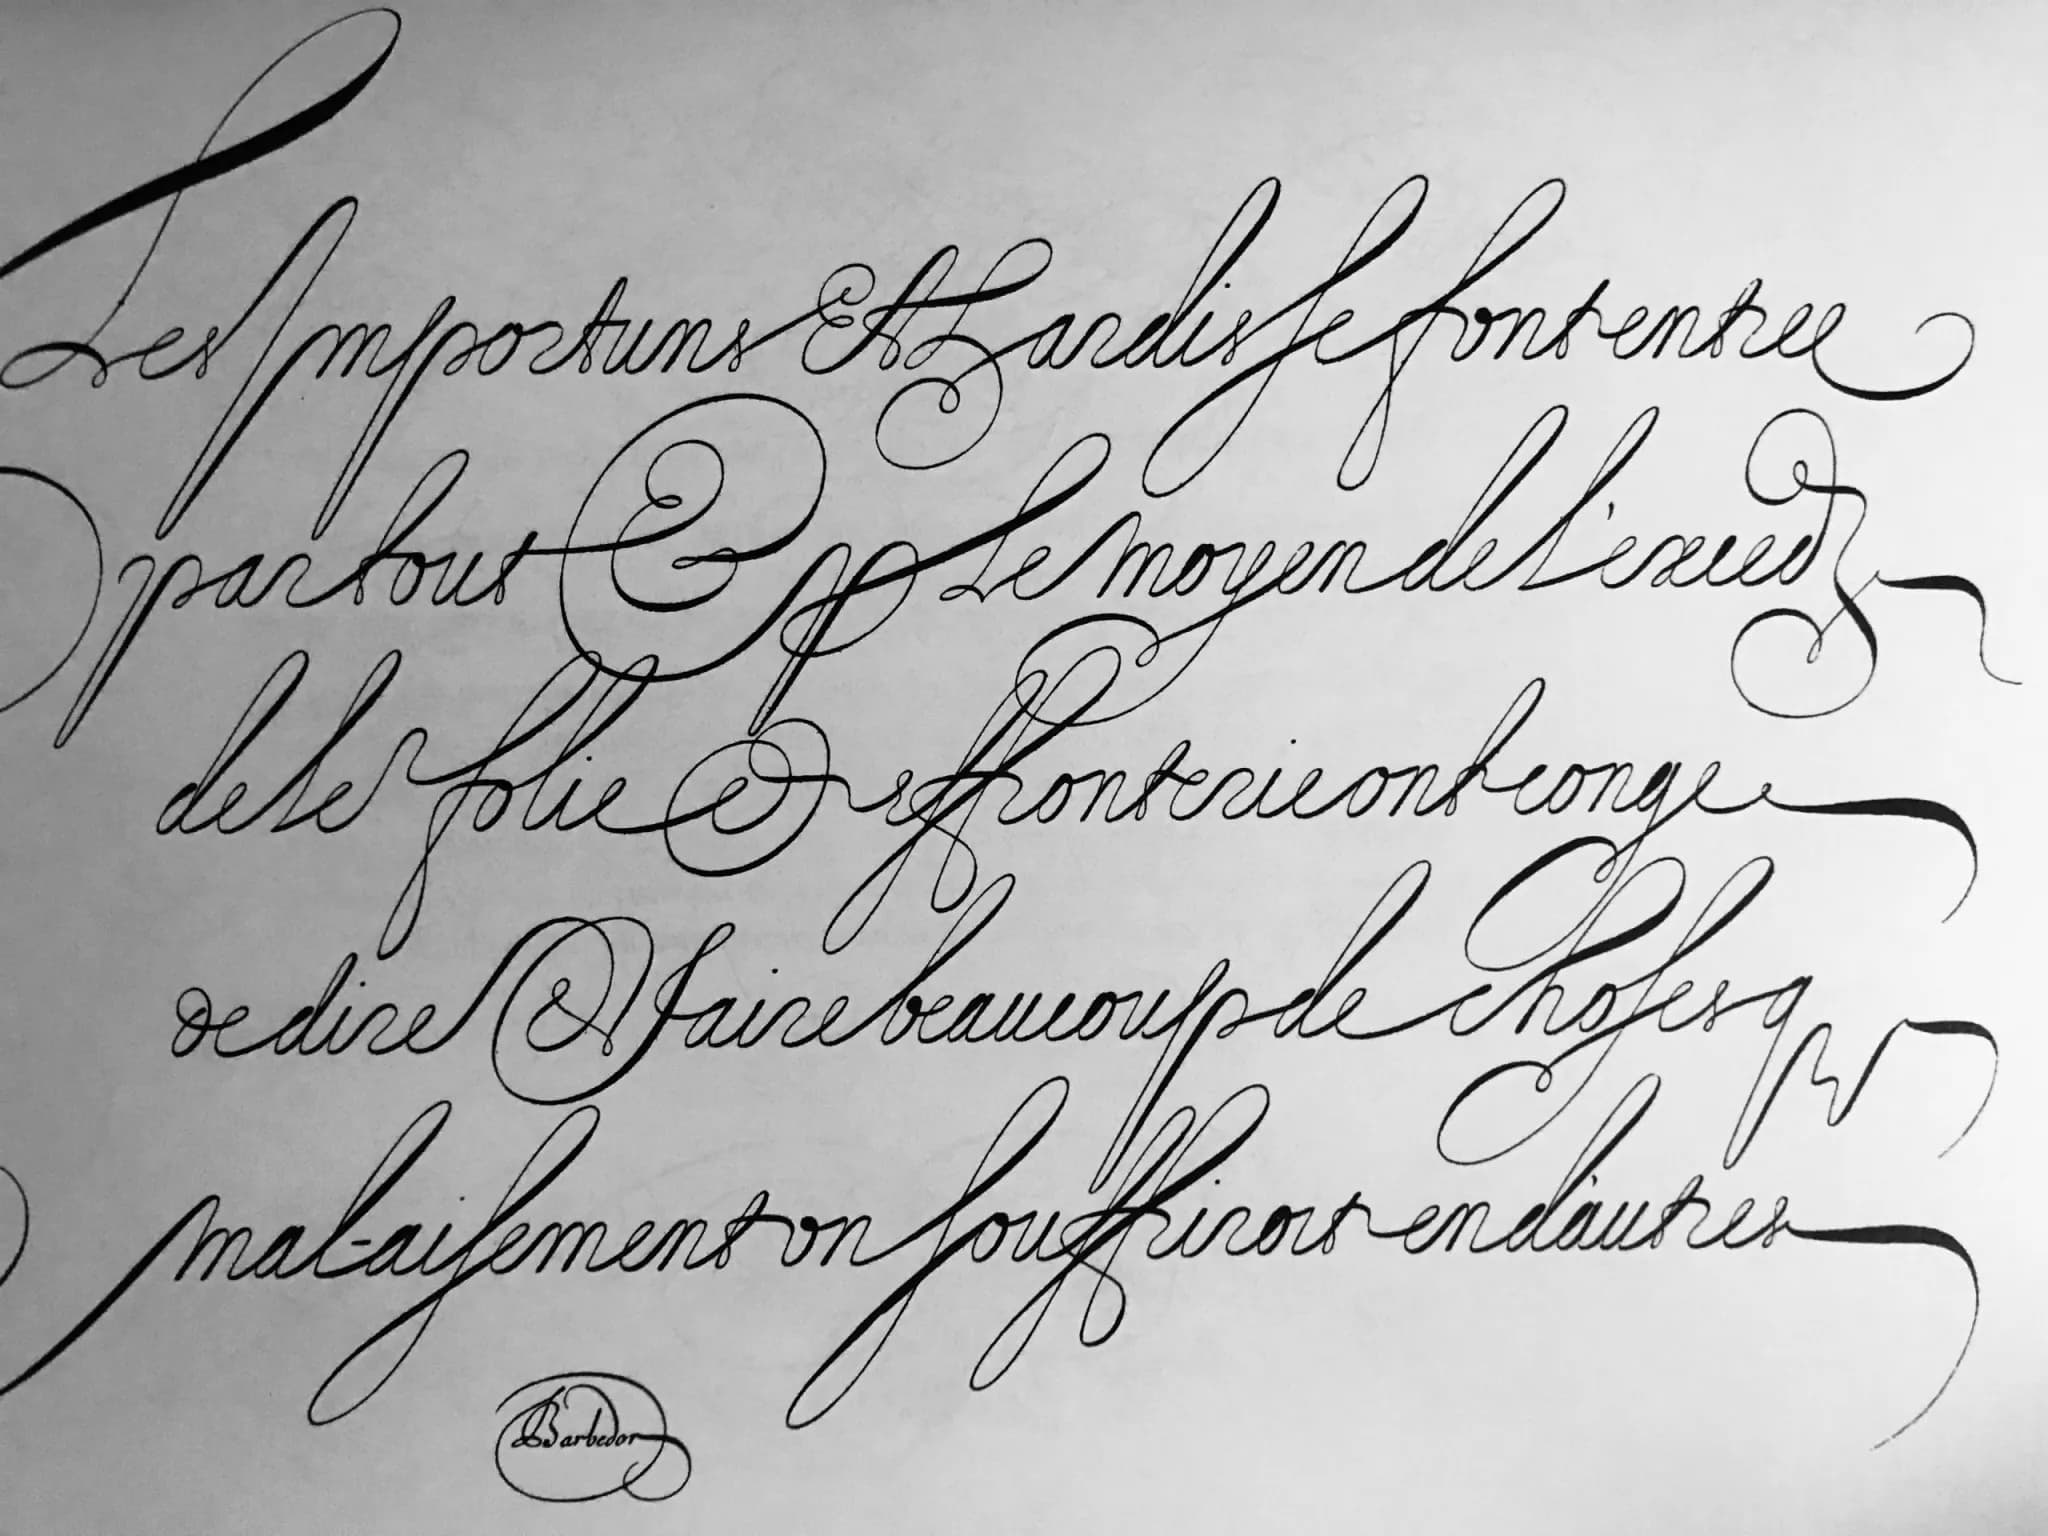 Les Importuns Et Hardis ſe font entree
par tout & p Le moyen de
de ler folie & effronterie ont conge
De dire & faire beaucoup de choſes q
mal-aiſement on ſouffriroit en d'autres
Barbedor